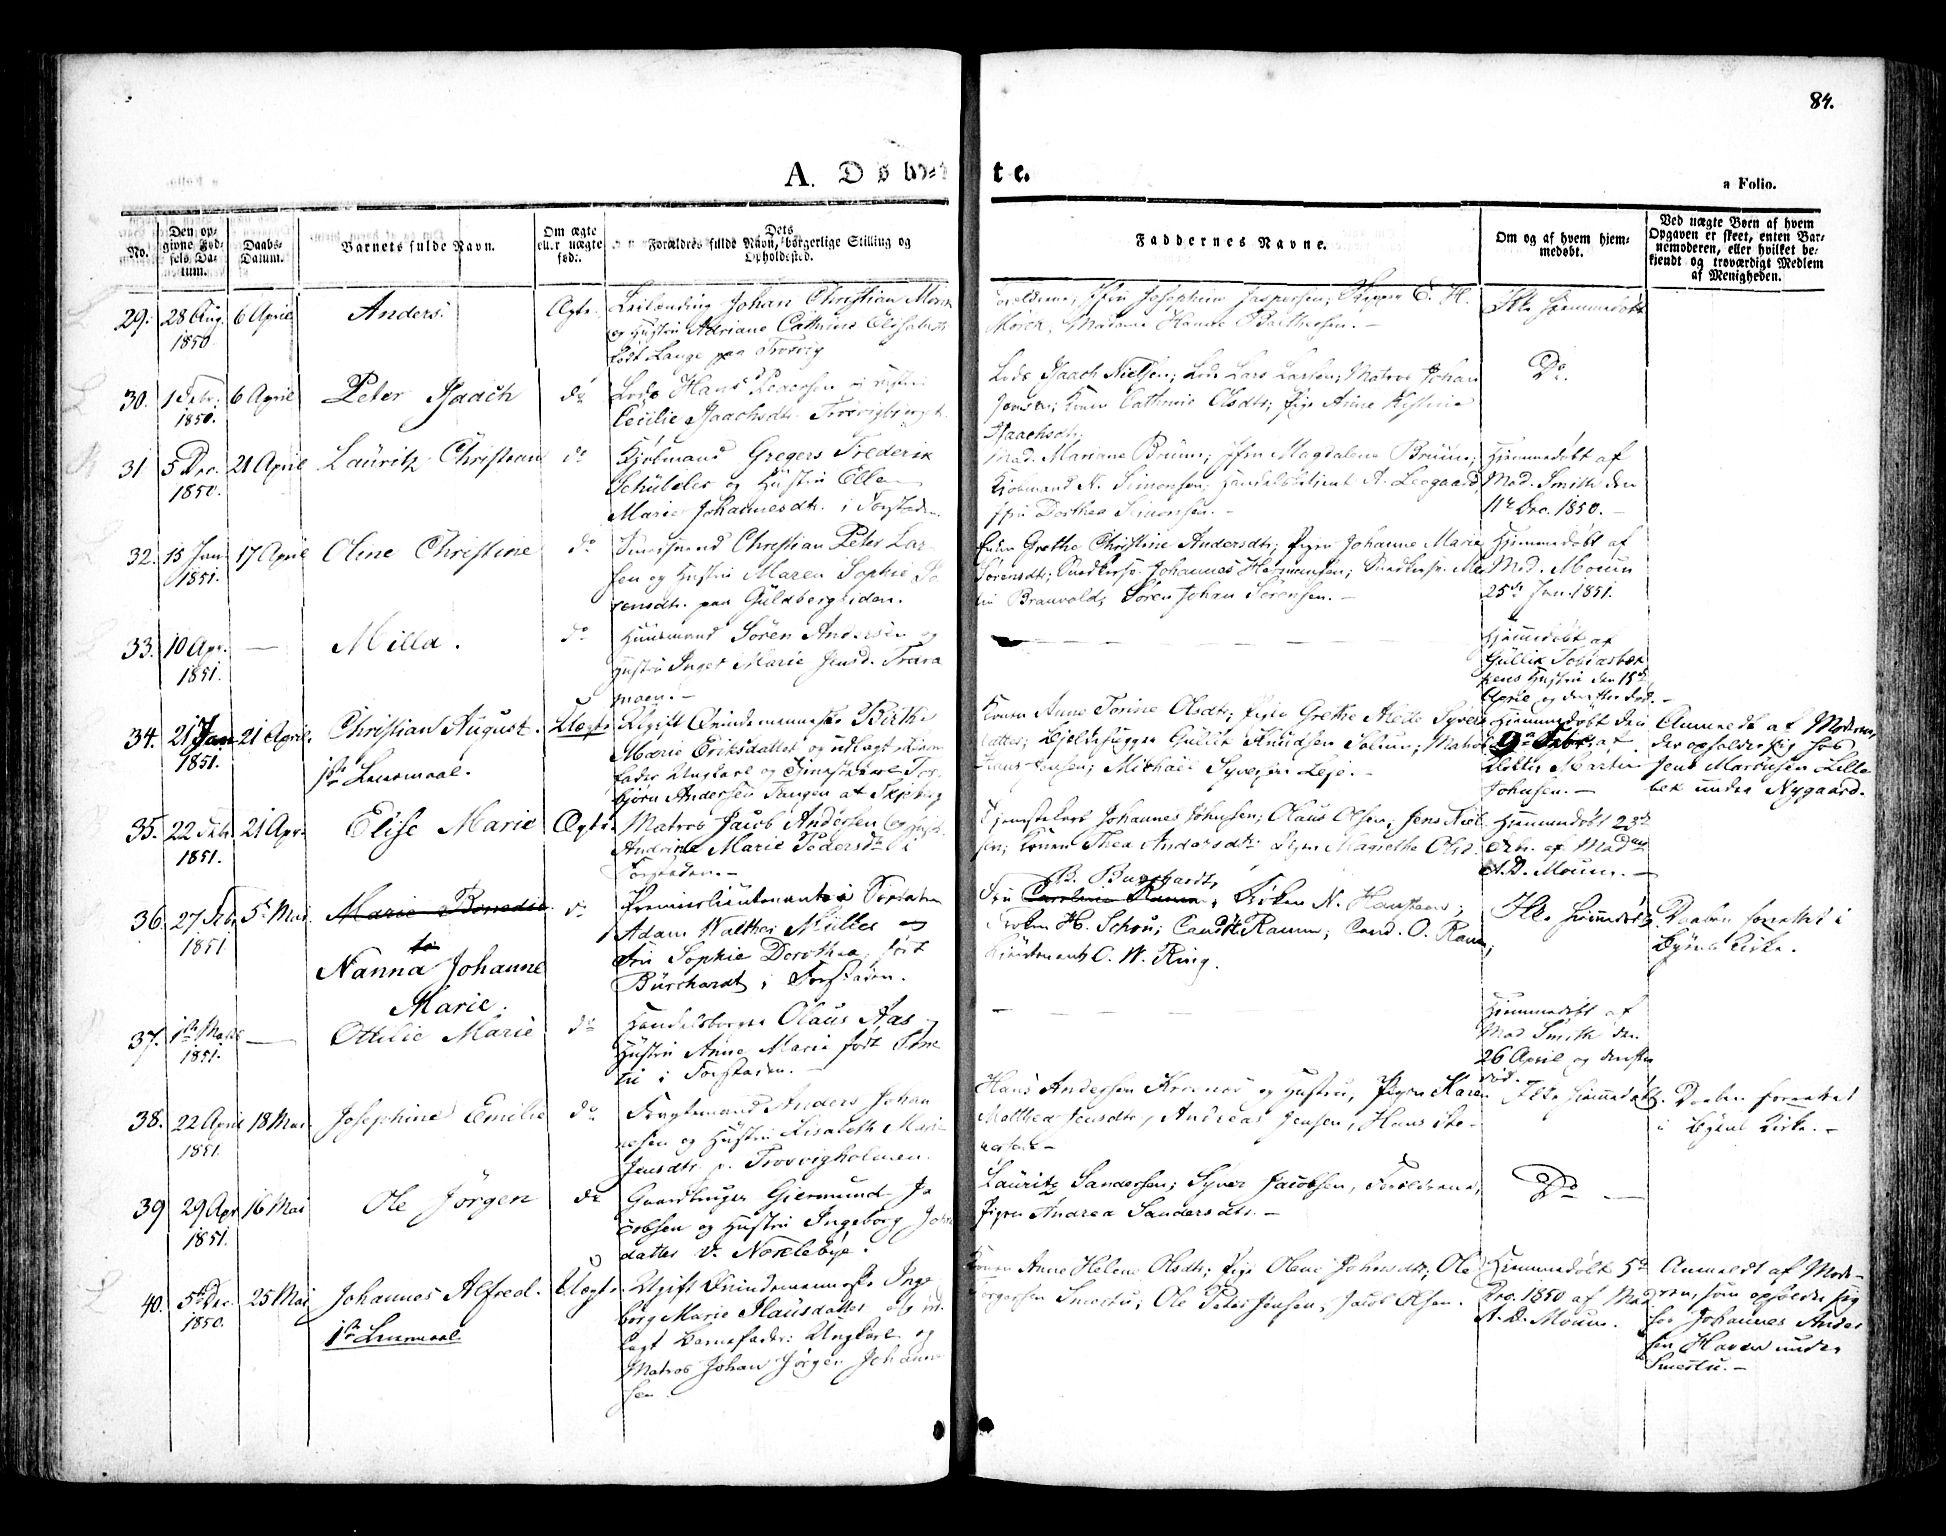 84.
A. Døbte.
a Folio.
No.
Den op-
givne Fød-
sels Da-
tum.
Daabs-
Datum.
Barnets fulde Navn.
Om ægte
eller uægte
født.
Dets
Forældres fulde Navn, borgerlige Stilling og
Opholdssted.
Faddernes Navne.
Om og af hvem hjem-
medøbt.
Ved uægte Børn af hvem
Opgaven er skeet, enten Bar-
nemoderen, eller hvilket be-
kjendt og troværdigt Medlem
af Menigheden.
29. 28 Aug. 1850. 6 April Anders. Ægte.
Johan Christian Mørch
og Hustru Adriane Cathrine Elisabeth
født Lange paa
Forældrene; Jfru Josephine Jespersen; Skipper C. H.
Mørch; Madame Hanne
Ikke hjemmedøbt
30. 1 Febr. 1850. 6 April Peter Isaach do
Lods Hans Pedersen og Hustru
Cecilie Isaachsdtr.
Lods Isaach Nielsen; Lods Lars Larsen; Matros Johan
Jensen; Konen Cathrine Olsdtr; Pige Anne Kistine
Isaachsdtr.
Do.
31 5 Dec. 1850. 21 April Lauritz Christian do
Kjøbmand Gregers Frederik
og Hustru Ellen
Marie Johannesdtr. i Forstaden
Mad. Mariane Bruun; Jfru Magdalene Bruun;
Kjøbmand N. Simonsen; Handelsbetjent A. Leegaard,
Jfru Dorthea Simonsen. -
Hjemmedøbt af
Mad. Smith den
11te Dec. 1850. -
32. 13 Jan 1851. 17 April Oline Christine do
Christian Peter Lar-
sen og Hustru Maren Sophie Sø-
rensdtr. paa Guldbergsiden.
Enken Grethe Christine Andersdtr; Pigen Johanne Marie
Sørensdtr; Snedkersv. Johannes Hermansen; Snedkersv. Mar-
tin Branvold; Søren Johan Sørensen. -
Hjemmedøbt af
Mad. Moum
25de Jan. 1851.
33. 10 Apr. 1851. — Milla. do
Huusmand Søren Andersen og
Hustru Inger Marie Jensd. Trara
moen. -
Hjemmedøbt af
Gullik Tobiasbæk
kens Hustru den 15de
April og derefter død. -
34. 21 Jan 1851. 21 April. Christian August. Uægte.
1ste Leiermaal.
Ugift Qvindemenneske Birthe
Marie Eriksdatter og udlagt Barne
fader Ungkarl og Tjenestekarl Tor-
bjørn Andersen Tangen at Skjeberg
Konen Anne Torine Olsdtr; Pige Grethe Alette Syvers
datter; Gullik Knudsen Solum; Matros
Hans Jensen; Michael Syversen Leje. -
Hjemmedøbt den
9de Febr. af
Martin
Johnsen. -
Anmeldt af Moderen,
der opholder sig hos
Jens Mathiesen Lille
bek under Nygaard.
35. 22 Febr. 1851. 21 Apr. Elise Marie Ægte.
Matros Jacob Andersen og Hustru
Andrine Marie Pedersdtr i
Forstaden. -
Tjenestekarl Johannes Johnsen; Olaus Olsen; Jens Niel-
sen; Konen Thea Andersdtr; Pigen Magrethe Olsd.
Hjemmedøbt 23de
Febr. af Madme
A. D. Moum. -
36. 27 Febr. 1851 5te Mai. Marie Benedic-
te
Nanna Johanne
Marie. do
Premierlieutenant i
Adam Walther Müller og
Fru Sophie Dorothea, født
Burchardt i Forstaden.
B. Burchardt,
Fru Caroline Ramm, Frøken N.
Frøken H. Schou; Cand. Ramm; Cand. O. Ramm;
Lieutenant C. W. Ring.
Ikke hjemmedøbt.
Daaben forrettet i
Byens Kirke.
37. 1ste Marts 1851. — Ottilie Marie do
Handelsborger Olaus Aas og
Hustru Anne Marie født
i Forstaden. -
Hjemmedøbt af
Mad Smith den
26 April og derefter
død.
38. 22 April 1851. 18 Mai Josephine Emilie do
Fragtemand Anders Johan
nesen og Hustru Elisabeth Marie
Jensdtr. p. Trosvigholmen.
Hans Andersen og Hustru, Pigen Karen
Mathea Jensdtr, Andreas Jensen, Hans
Ikke hjemmedøbt.
Daaben forrettet
i Byens Kirke. -
39 29 Apr 1851. 16 Mai Ole Jørgen do
Gaardbruger Giermund Ja-
cobsen og Hustru Ingeborg Johns
datter v. Nordebye.
Lauritz Sandersen; Syver Jacobsen, Forældrene,
Pigen Andrea Sandersdtr. -
Do —
40. 5te Dec. 1850. 25 Mai Johannes Alfred. Uægte.
1ste Leiermaal
Ugift Qvindemenneske Inge-
borg Marie Klausdatter og ud-
lagt Barnefader: Ungkarl og
Matros Johan Jørgen Johanne-
sen.
Konen Anne Helene Olsdtr, Pige Olene Johnsdtr, Ole
Jørgensen Smertu; Ole Peter Jensen, Jacob Olsen.
Hjemmedøbt 5te
Dec. 1850 af Mad
A. D. Moum.
Anmeldt af Mode-
ren, som opholder sig
hos Johannes Ander
sen Haven under
Smertu. -